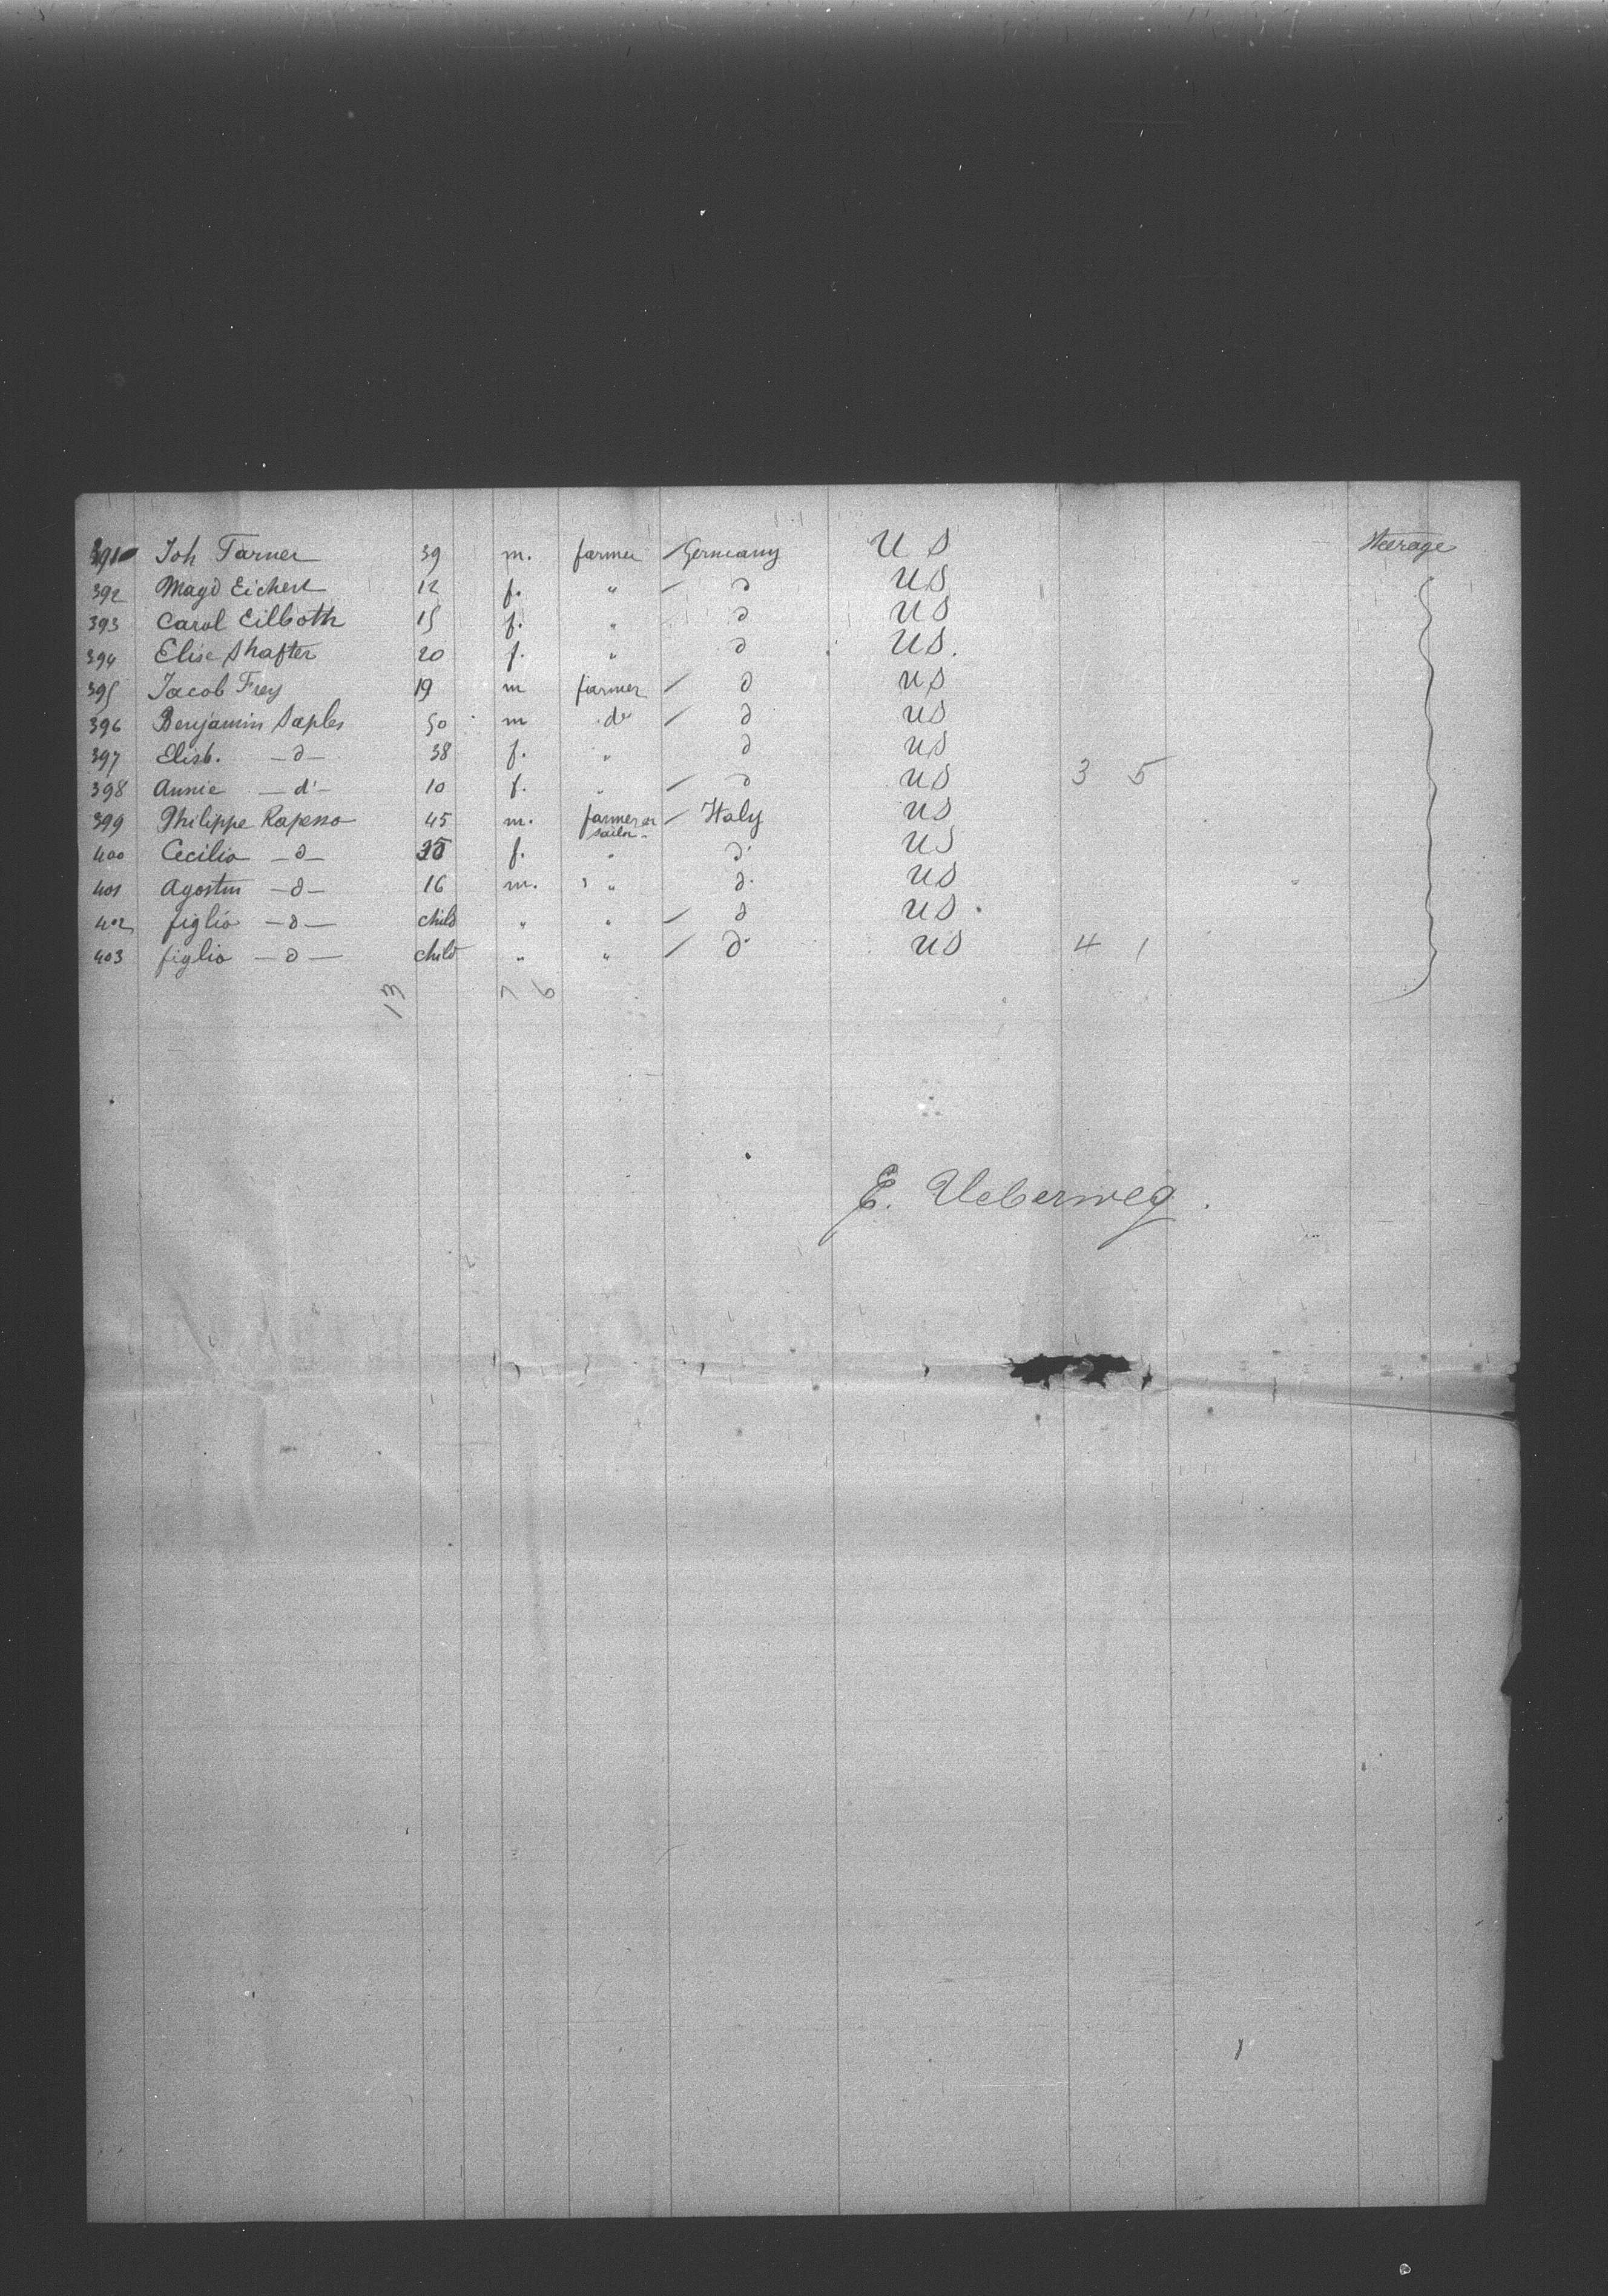 391 Joh Tarner 39 m. farmer / Germany U S Steerage
392 Magd Eichert 12 f. " / d US
393 Carol Eilboth 15 f. " d US
394 Elise Shafter 20 f. " d US.
395 Jacob Frey 19 m farmer / d US
396 Benjamin Saples 50 m do / d US
397 Elisb. — d — 38 f. " d US
398 Annie — d — 10 f. " / d US 3 5
399 Philippe Rapesso 45 m. farmer or / Italy US
sailor -
400 Cecilia — d — f. " d. US
401 Agostin — d — 16 m. " d. US
402 figlio — d — child " " / d US .
403 figlio — d — child " " / d. US 4 1
13 7 6
E. Ueberweg .